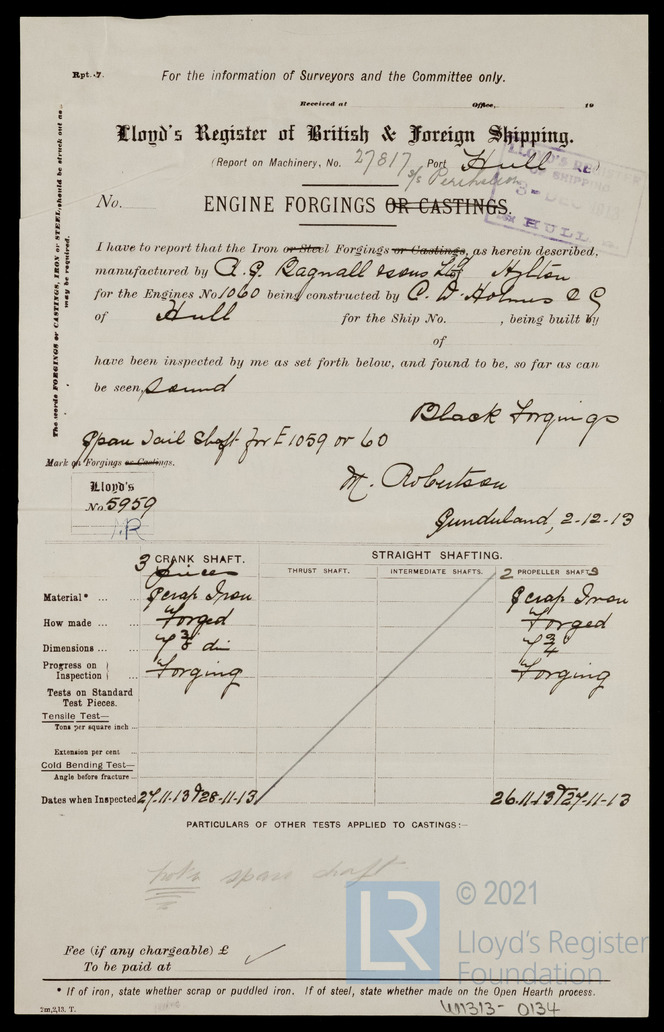 Rpt. 7.
For the information of Surveyors and the Committee only.
Received at Office, 19
Lloyd's Register of British & Foreign Shipping.
(Report on Machinery, No. 27817, Port Hull
s/s Perihelion
LLOYD'S REGISTER
OF SHIPPING
3-DEC 1913
HULL
No.
ENGINE FORGINGS OR CASTINGS.
The words FORGINGS or CASTINGS, IRON or STEEL, should be struck out as
may be required.
I have to report that the Iron or Steel Forgings or Castings, as herein described,
manufactured by A. G. Bagnall & Sons Ltd Hylton
for the Engines No 1060 being constructed by C. D. Holmes & Co
of Hull for the Ship No. , being built by
of
have been inspected by me as set forth below, and found to be, so far as can
be seen, sound
Black Forgings
Spare Tail Shaft for E 1059 or 60
Mark on Forgings or Castings.
M. Robertson
Lloyd's
No. 5959
M.R
Sunderland, 2-12-13
3 CRANK SHAFT. STRAIGHT SHAFTING.
pieces THRUST SHAFT. INTERMEDIATE SHAFTS. 2 PROPELLER SHAFTS
Material* ... ... Scrap Iron Scrap Iron
How made ... ... Forged Forged
Dimensions ... ... 7 3/8 di 7 3/4
Progress on Inspection ... Forging Forging
Tests on Standard
Test Pieces.
Tensile Test—
Tons per square inch ...
Extension per cent ...
Cold Bending Test—
Angle before fracture ...
Dates when Inspected 27-11-13 & 28-11-13 26.11.13 & 27-11-13
PARTICULARS OF OTHER TESTS APPLIED TO CASTINGS:—
note spare shaft
LR
© 2021
Lloyd's Register
Foundation
Fee (if any chargeable) £
To be paid at
* If of iron, state whether scrap or puddled iron. If of steel, state whether made on the Open Hearth process.
2m,2,13. T.
UN313-0134